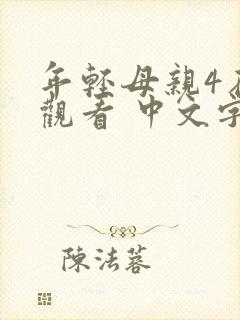 年輕母親4在
觀看 中文字
陳法蓉